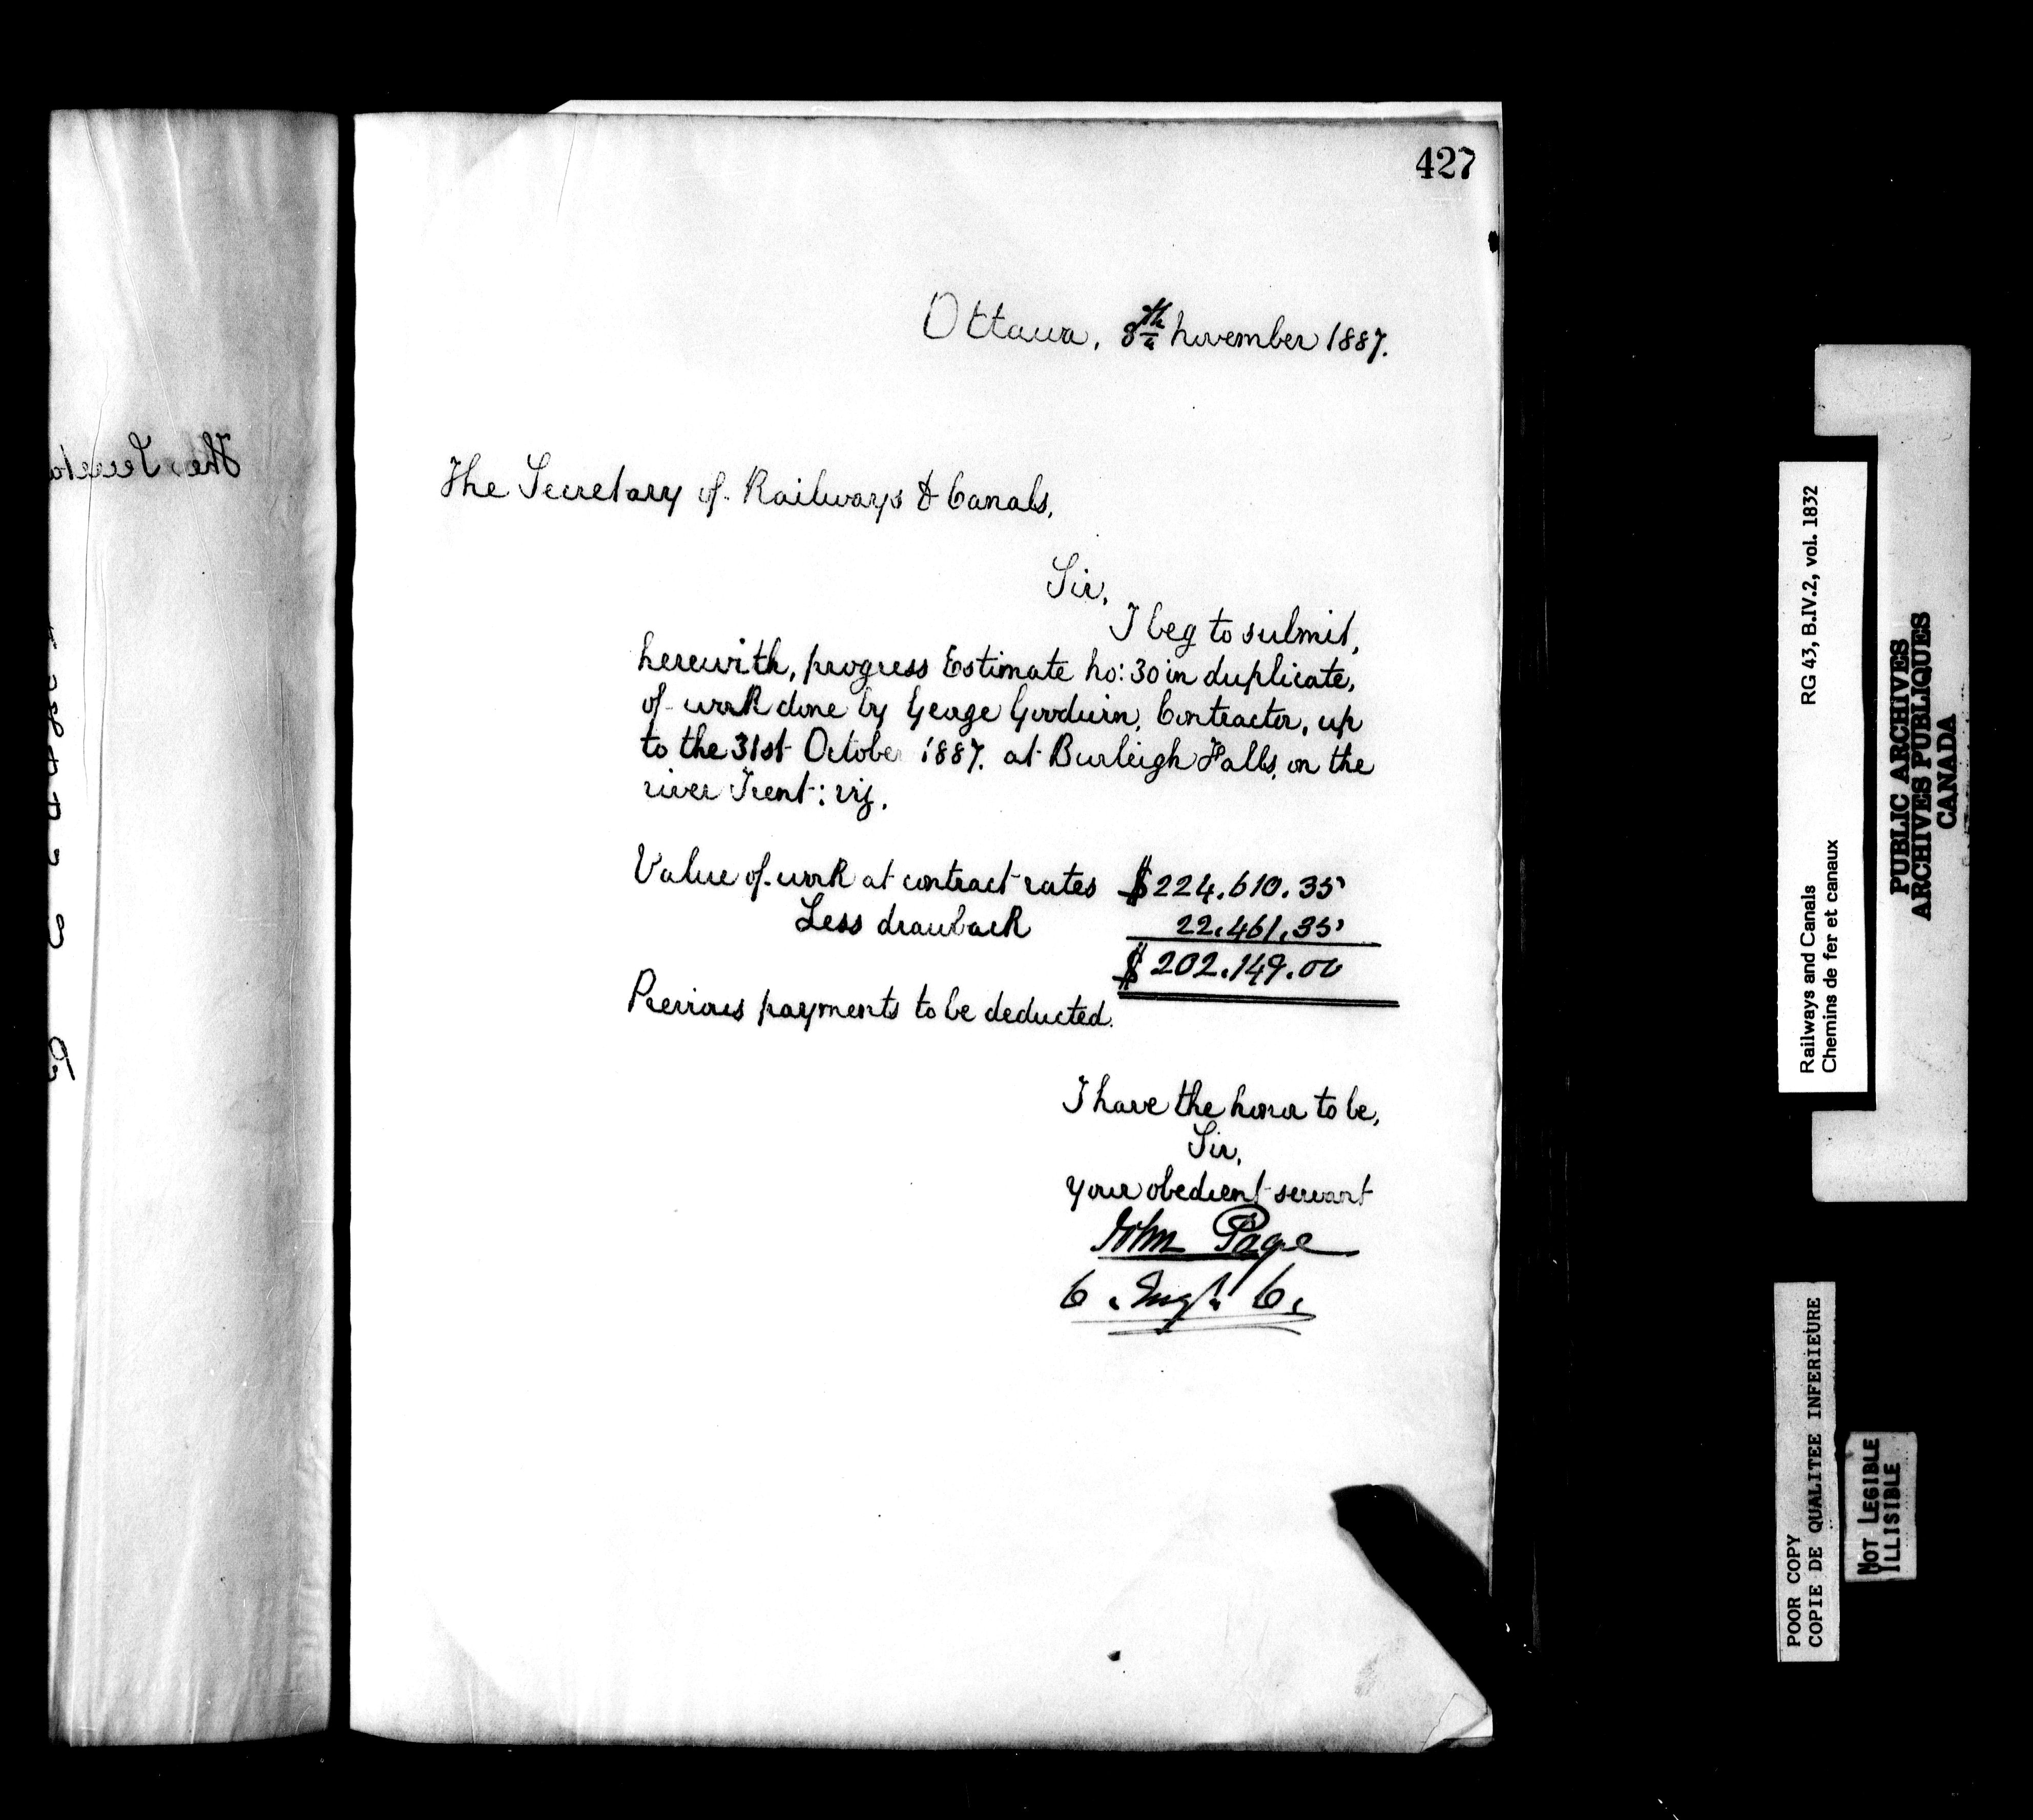 427
Ottawa, 8th November 1887.
The Secretary of Railways & Canals,
Sir,
I beg to submit,
herewith, progress Estimate No: 30 in duplicate,
of work done by George Goodwin, Contractor, up
to the 31st October 1887. at Burleigh Falls, on the
river Trent: viz.
Value of work at contract rates $224,610.35
Less drawback 22,461.35
$202,149.00
Previous payments to be deducted.
I have the honor to be,
Sir,
your obedient servant
John Page
C. Engr. C.
The Secreta
RG 43, B.IV.2, vol. 1832
Railways and Canals
Chemins de fer et canaux
PUBLIC ARCHIVES
ARCHIVES PUBLIQUES
CANADA
POOR COPY
COPIE DE QUALITEE INFERIEURE
NOT LEGIBLE
ILLISIBLE